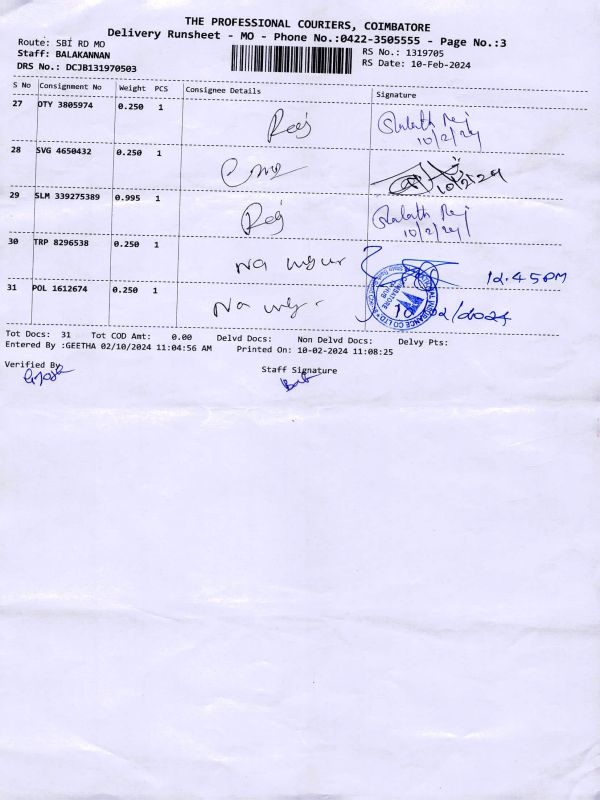 THE PROFESSIONAL COURIERS, COIMBATORE
Delivery Runsheet - MO - Phone No.:0422-3505555 - Page No.:3
Route: SBI RD MO
RS No.: 1319705
Staff: BALAKANNAN
RS Date: 10-Feb-2024
DRS No.: DCJB131970503
S No Consignment No Weight PCS Consignee Details Signature
27 OTY 3805974 0.250 1
10/2/24
28 SVG 4650432 0.250 1
10/2/24
29 SLM 339275389 0.995 1
10/2/24
30 TRP 8296538 0.250 1
12.45PM
31 POL 1612674 0.250 1
10/02/2024
Tot Docs: 31 Tot COD Amt: 0.00 Delvd Docs: Non Delvd Docs: Delvy Pts:
Entered By :GEETHA 02/10/2024 11:04:56 AM Printed On: 10-02-2024 11:08:25
Verified By
Staff Signature